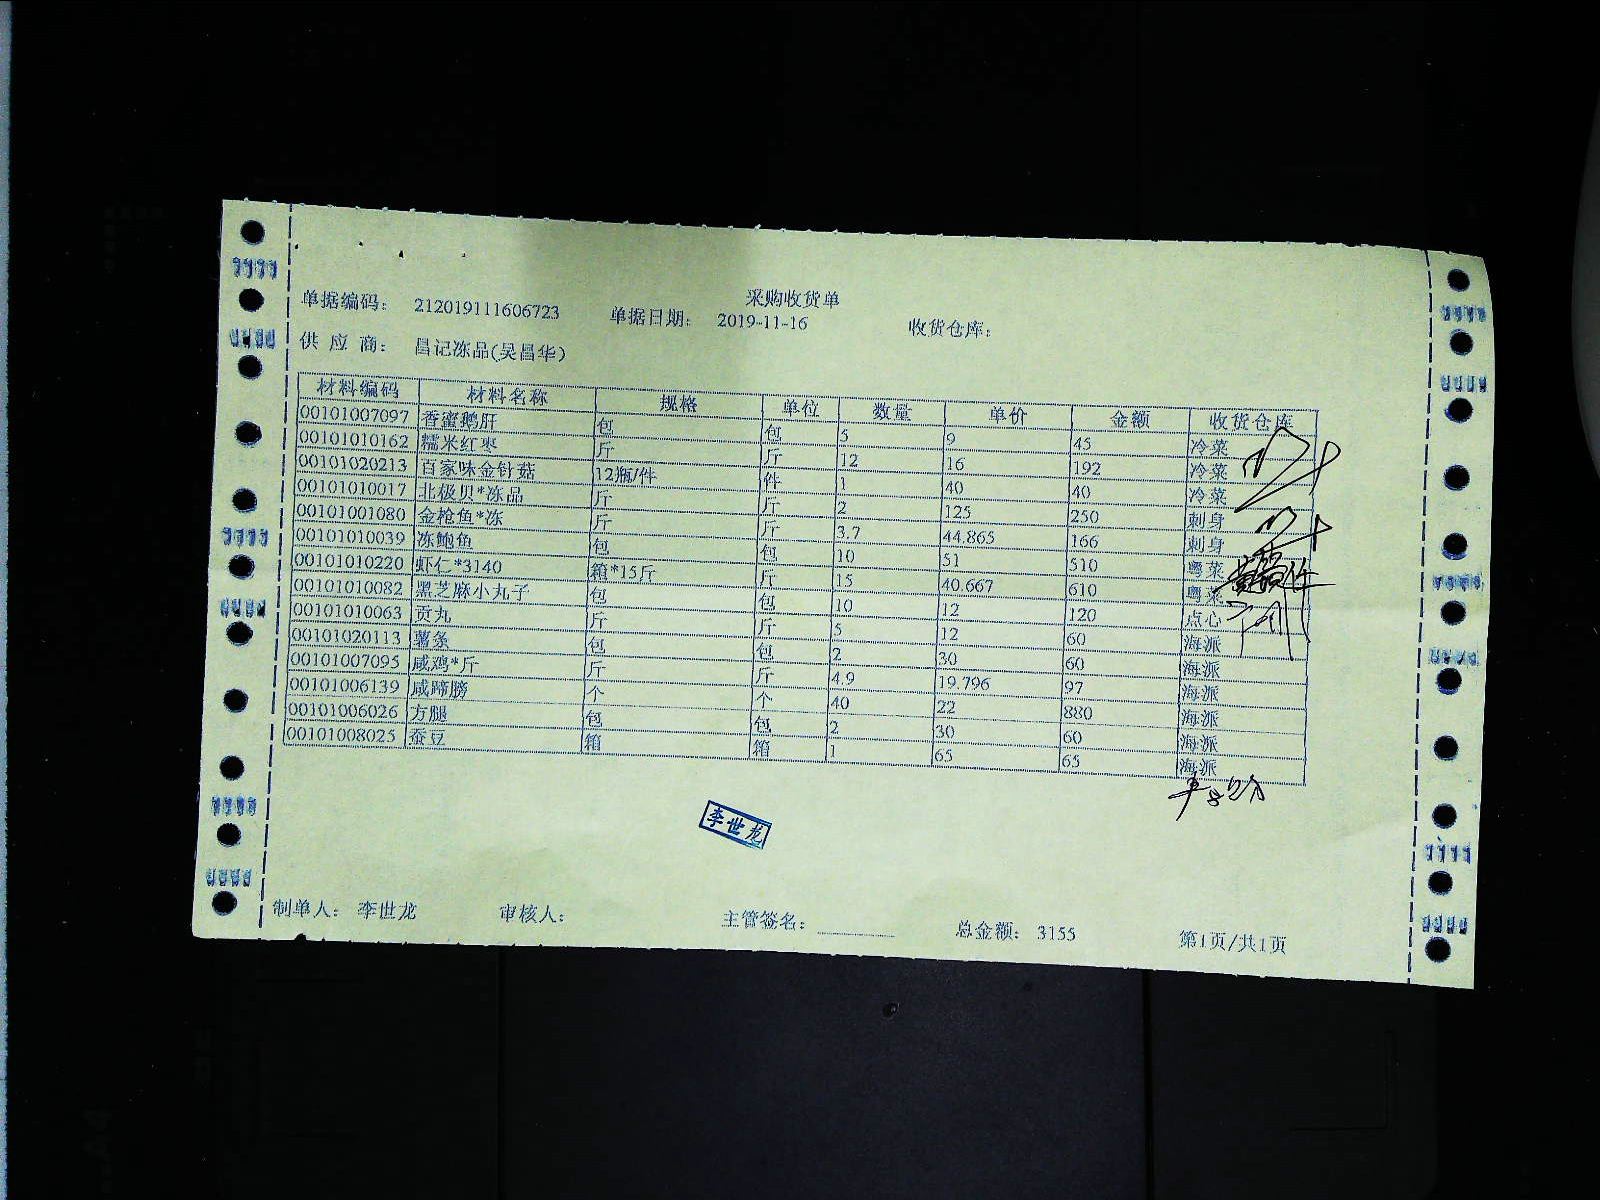 采购收货单
单据编码： 212019111606723 单据日期： 2019-11-16 收货仓库：
供 应 商： 昌记冻品(吴昌华)
材料编码 材料名称 规格 单位 数量 单价 金额 收货仓库
00101007097 香蜜鹅肝 包 包 5 9 45 冷菜
00101010162 糯米红枣 斤 斤 12 16 192 冷菜
00101020213 百家味金针菇 12瓶/件 件 1 40 40 冷菜
00101010017 北极贝*冻品 斤 斤 2 125 250 刺身
00101001080 金枪鱼*冻 斤 斤 3.7 44.865 166 刺身
00101010039 冻鲍鱼 包 包 10 51 510 粤菜
00101010220 虾仁*3140 箱*15斤 斤 15 40.667 610 粤菜
00101010082 黑芝麻小丸子 包 包 10 12 120 点心
00101010063 贡丸 斤 斤 5 12 60 海派
00101020113 薯条 包 包 2 30 60 海派
00101007095 咸鸡*斤 斤 斤 4.9 19.796 97 海派
00101006139 咸蹄膀 个 个 40 22 880 海派
00101006026 方腿 包 包 2 30 60 海派
00101008025 蚕豆 箱 箱 1 65 65 海派
李世龙
制单人： 李世龙 审核人： 主管签名： 总金额： 3155 第1页/共1页